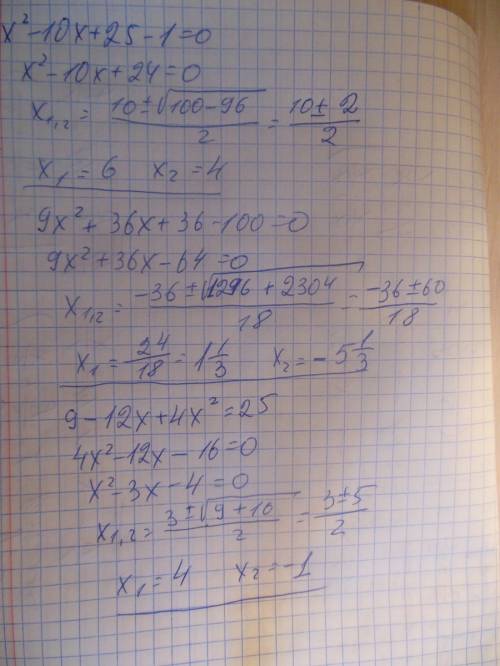 x²-10x+25-1=0
x²-10x+24=0
x₁,₂ = (10±√(100-96))/2 = (10±2)/2
x₁=6 x₂=4
9x²+36x+36-100=0
9x²+36x-64=0
x₁,₂ = (-36±√(1296+2304))/18 = (-36±60)/18
x₁ = 24/18 = 1 1/3 x₂ = -5 1/3
9-12x+4x²=25
4x²-12x-16=0
x²-3x-4=0
x₁,₂ = (3±√(9+16))/2 = (3±5)/2
x₁=4 x₂=-1